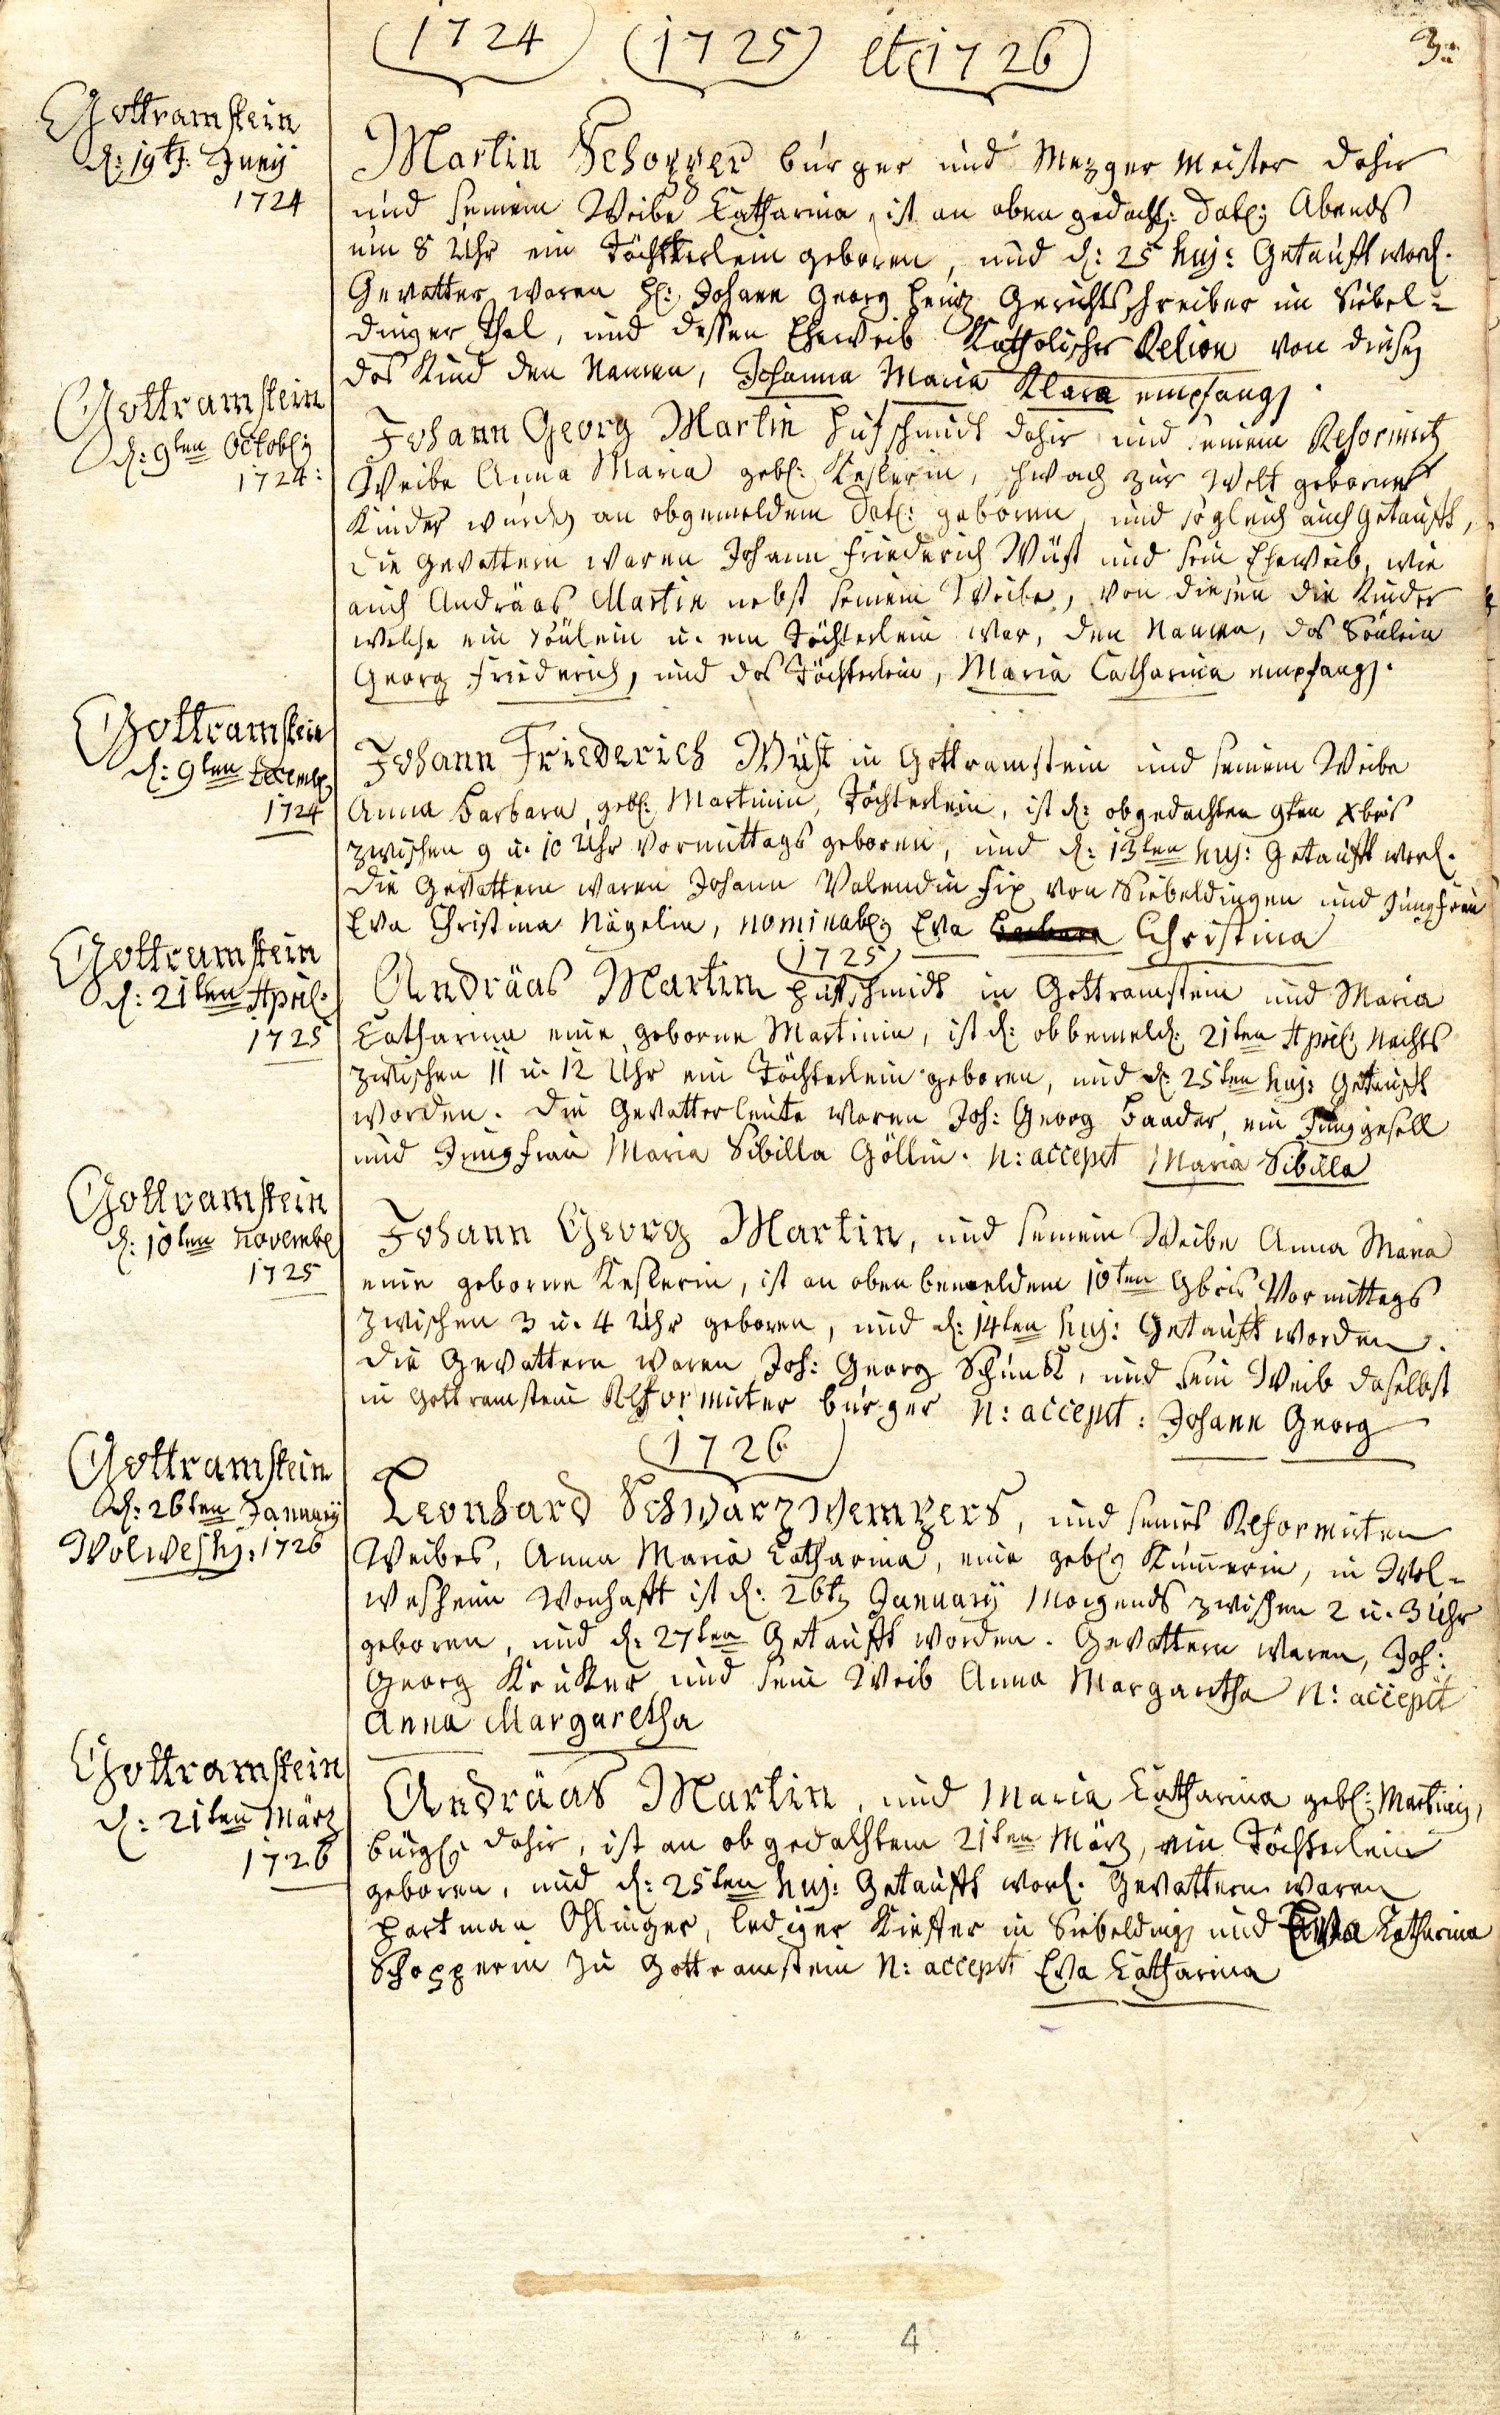 1724 1725 et 1726
3.
Gottramstein
d: 19t: Junÿ
1724
Martin Schopper burger und Mezger Meister dahir
und seinem Weibe Catharina, ist an oben gedacht: dat: Abends
um 8 Uhr ein Töchterlein geboren, und d: 25 huj: Getaufft word.
Gevatter waren H: Johann Georg Heintz Gerichtsschreiber im Siebel=
dinger Thal, und dessen Eheweib Katholischer Relion von diesen
das Kind den Namen, Johanna Maria Klara empfangen.
Gottramstein
d: 9ten Octob:
1724:
Johann Georg Martin Hufschmidt dahir und seinem Reformirten
Weibe Anna Maria geb: Keslerin, schwach zur Welt geborne
Kinder wurden an obgemeldem Dat: geboren und sogleich auch Getaufft,
die Gevattern waren Johann Friederich Wüst und sein Eheweib, wie
auch Andräas Martin nebst seinem Weibe, von diesen die Kinder
welche ein Söhlein u. ein Töchterlein war, den Namen, das Söhlein
Georg Friederich, und das Töchterlein, Maria Catharina empfangen.
Gottramstein
d: 9ten Decemb:
1724
Johann Friederich Wüst in Gottramstein und seinem Weibe
Anna Barbara, geb: Martinin, Töchterlein, ist d: obgedachten 9ten Xbris
zwischen 9 u. 10 Uhr Vormittags geboren, und d: 13ten huj: Getaufft word.
Die Gevattern waren Johann Valendin Fix von Siebeldingen und Jungfrau
Eva Christina Nägelin, nominat: Eva Christina
1725
Gottramstein
d: 21ten April:
1725
Andräas Martin Hufschmidt in Gottramstein und Maria
Catharina eine geborne Martinin, ist d: obbemeld: 21ten April: Nachts
zwischen 11 u. 12 Uhr ein Töchterlein geboren, und d: 25ten huj: Getaufft
worden. Die Gevatterleute waren Joh: Georg Baader, ein Junggesell
und Jungfrau Maria Sibilla Göllin. N: accepit Maria Sibilla
Gottramstein
d: 10ten Novemb:
1725
Johann Georg Martin, und seinem Weibe Anna Maria
eine geborne Keslerin, ist an oben bemeldem 10ten 9bris Vormittags
zwischen 3 u. 4 Uhr geboren, und d: 14ten huj: Getaufft worden.
Die Gevattern waren Joh: Georg Schunck, und sein Weib daselbst
in Gottramstein Reformirter burger N: accepit: Johann Georg
1726
Gottramstein
d: 26ten January
Wolwesh: 1726
Leonhard Schwarzwempers, und seines Reformirten
Weibes, Anna Maria Catharina, eine geb: Kümmerin, in Wol=
wesheim Wonhafft ist d: 26t: January Morgends zwischen 2 u. 3 Uhr
geboren, und d: 27ten Getaufft worden. Gevattern waren, Joh:
Georg Krucker und sein Weib Anna Margaretha N: accepit
Anna Margaretha
Gottramstein
d: 21ten März
1726
Andräas Martin, und Maria Catharina geb: Martinin,
bürger dahir, ist an obgedachtem 21ten März, ein Töchterlein
geboren, und d: 25ten huj: Getaufft word. Gevattern waren
Hartman Öhlinger, lediger Kieffer in Siebelding und Eva Catharina
Schopperin zu Gottramstein N: accepit Eva Catharina
4